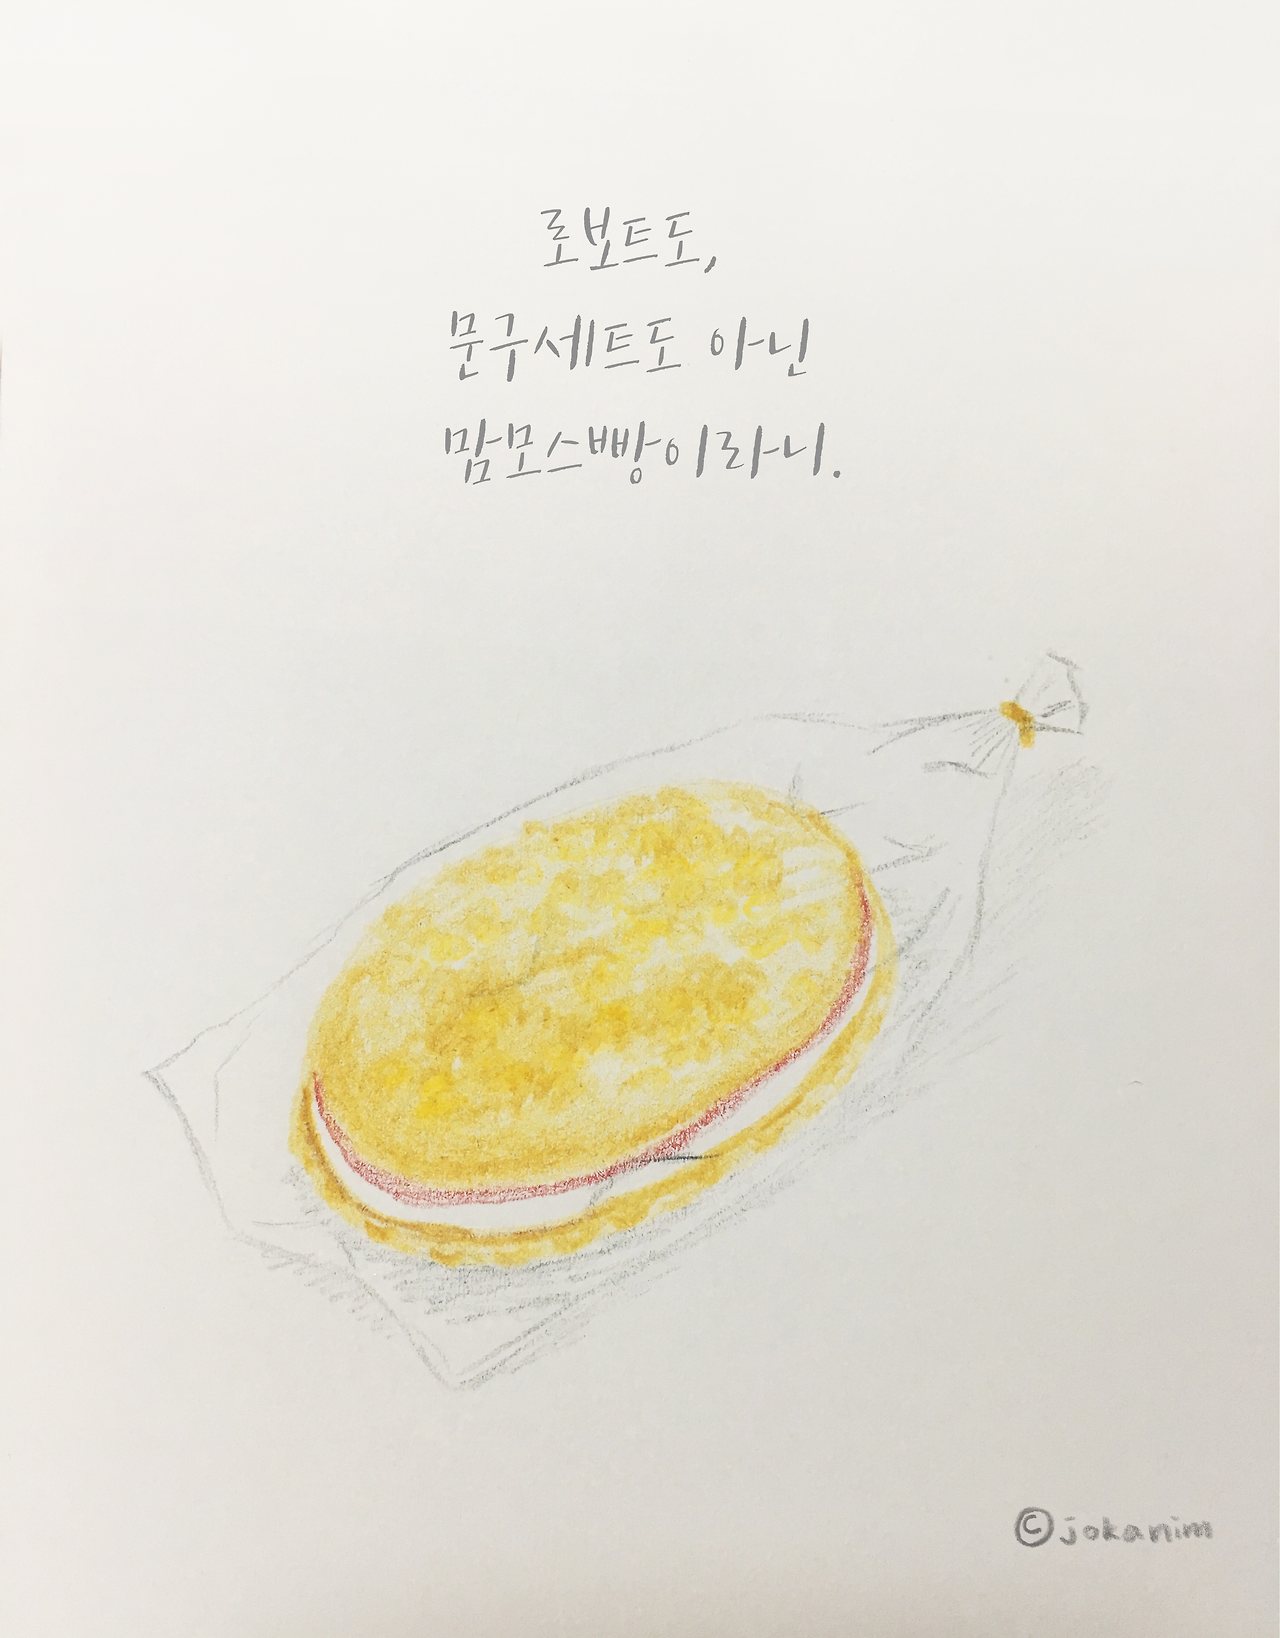 로보트도,
문구세트도 아닌
맘모스빵이라니.
©jokanim